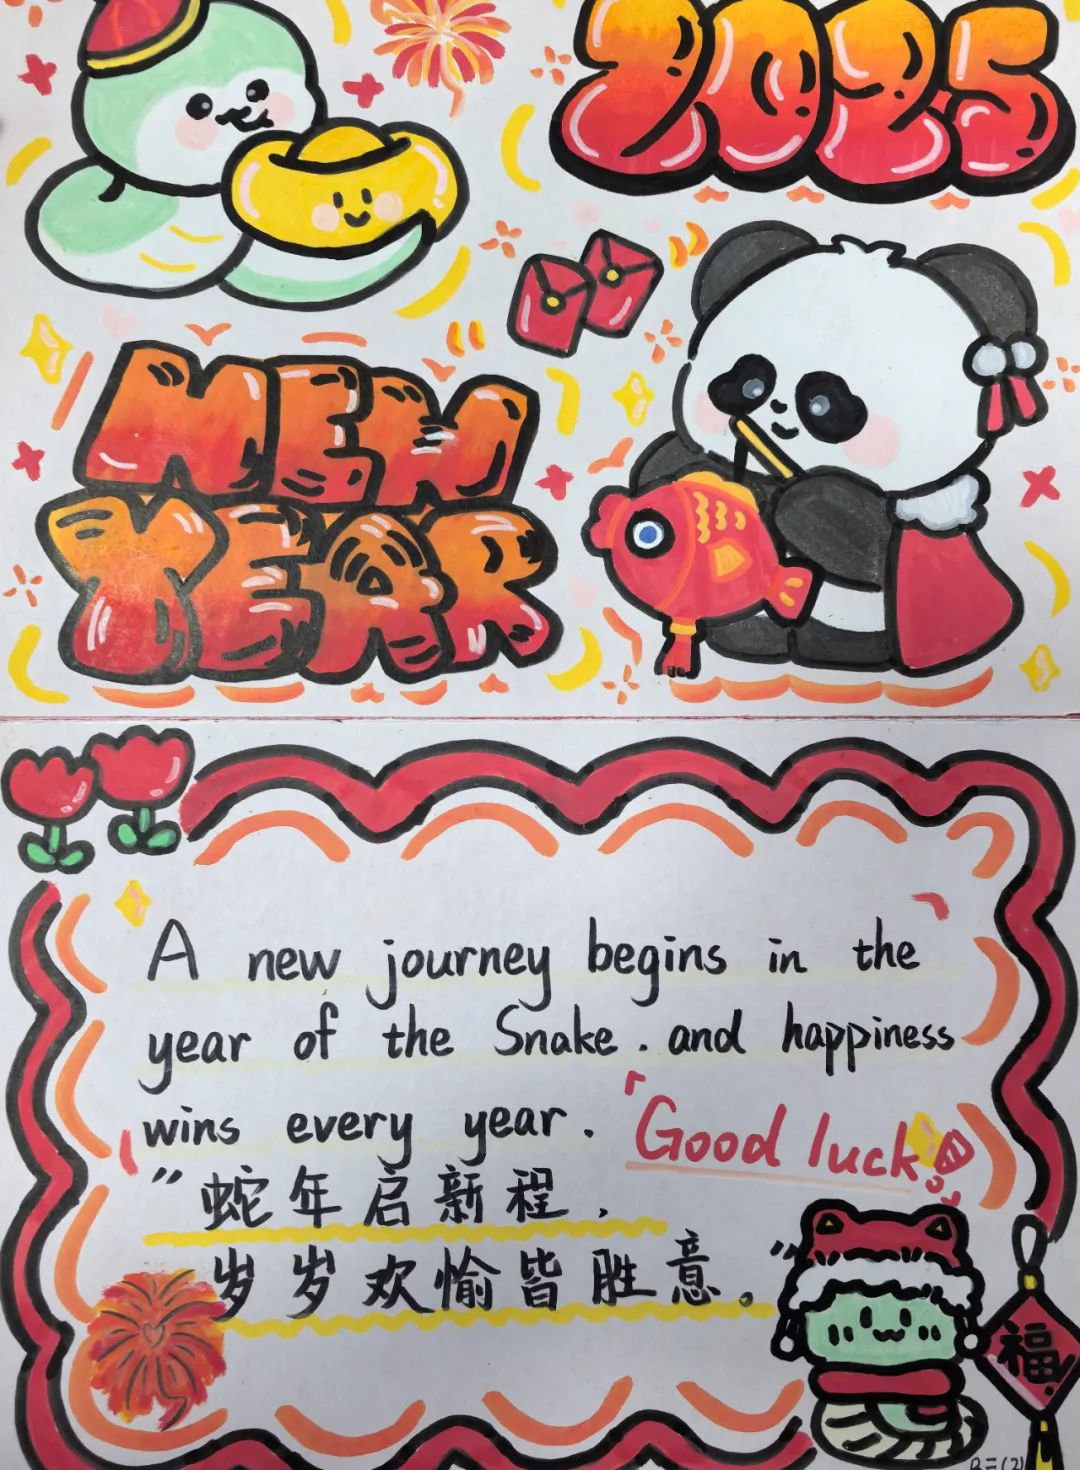 2025
NEW
YEAR
A new journey begins in the
year of the Snake . and happiness
wins every year .
Good luck
"蛇年启新程 ,
岁岁欢愉皆胜意。"
福